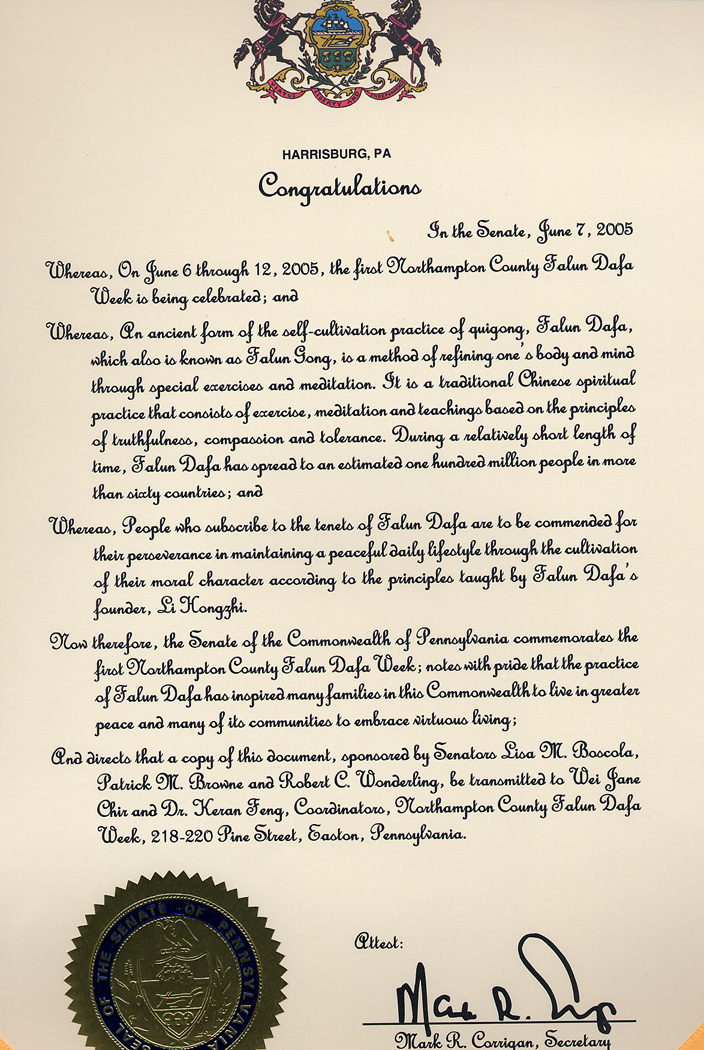 VIRTUE LIBERTY AND INDEPENDENCE
HARRISBURG, PA
Congratulations
In the Senate, June 7, 2005
Whereas, On June 6 through 12, 2005, the first Northampton County Falun Dafa
Week is being celebrated; and
Whereas, An ancient form of the self-cultivation practice of quigong, Falun Dafa,
which also is known as Falun Gong, is a method of refining one's body and mind
through special exercises and meditation. It is a traditional Chinese spiritual
practice that consists of exercise, meditation and teachings based on the principles
of truthfulness, compassion and tolerance. During a relatively short length of
time, Falun Dafa has spread to an estimated one hundred million people in more
than sixty countries; and
Whereas, People who subscribe to the tenets of Falun Dafa are to be commended for
their perseverance in maintaining a peaceful daily lifestyle through the cultivation
of their moral character according to the principles taught by Falun Dafa's
founder, Li Hongzhi.
Now therefore, the Senate of the Commonwealth of Pennsylvania commemorates the
first Northampton County Falun Dafa Week; notes with pride that the practice
of Falun Dafa has inspired many families in this Commonwealth to live in greater
peace and many of its communities to embrace virtuous living;
And directs that a copy of this document, sponsored by Senators Lisa M. Boscola,
Patrick M. Browne and Robert C. Wonderling, be transmitted to Wei Jane
Chir and Dr. Keran Feng, Coordinators, Northampton County Falun Dafa
Week, 218-220 Pine Street, Easton, Pennsylvania.
SEAL OF THE SENATE OF PENNSYLVANIA
Attest:
Mark R.
Mark R. Corrigan, Secretary